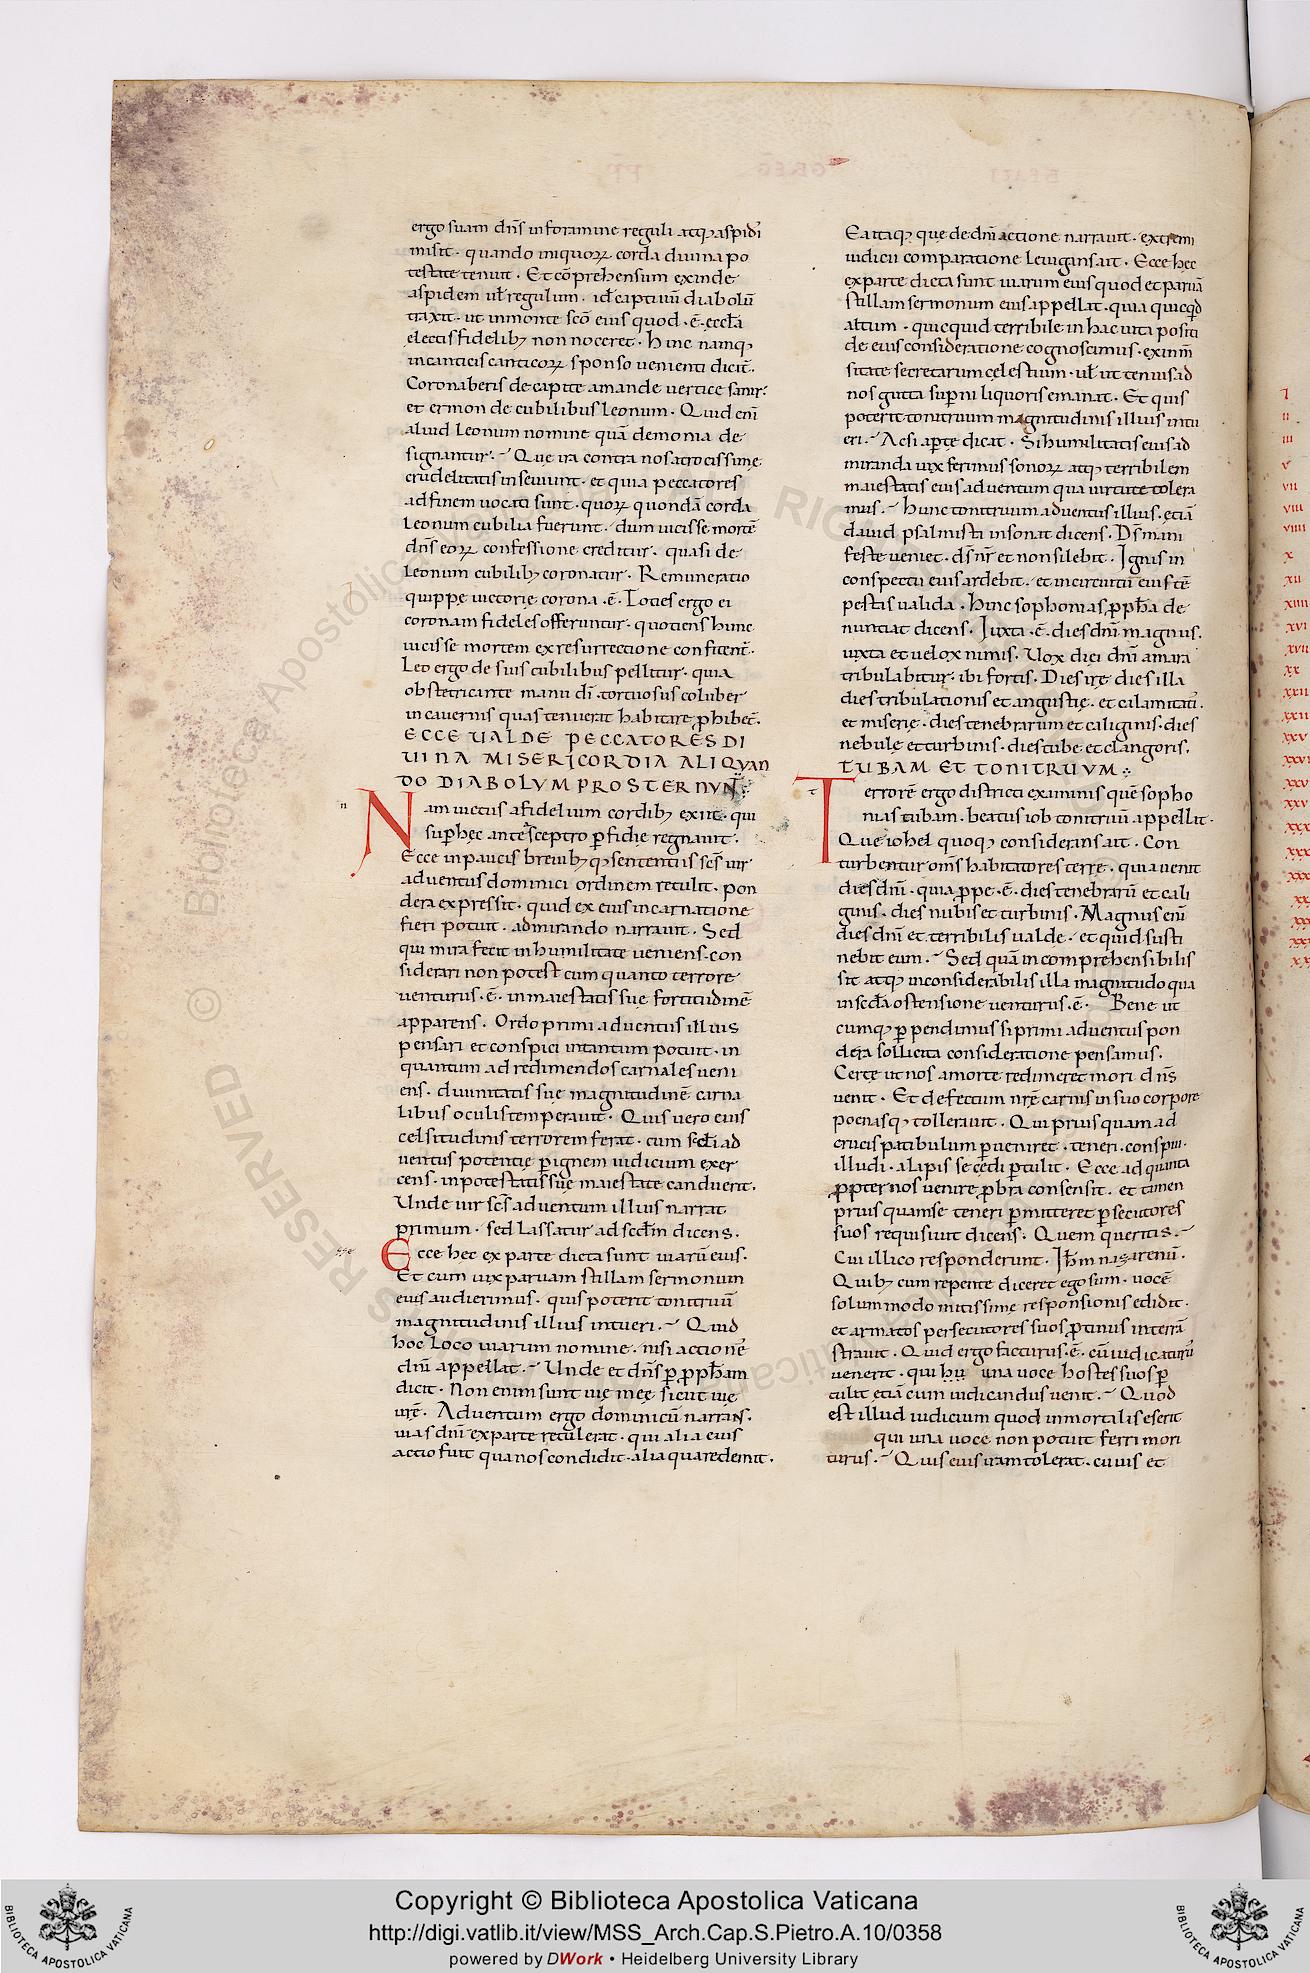 ergo suam dñs in foramine reguli atq; aspidis
misit · quando iniquoꝝ corda diuina po
testate tenuit · Et cõprehensum exinde
aspidem ul̃ regulum · id̃ captiuũ diabolũ
traxit · ut in monte scõ eius quod · ẽ · eccl̃a
electis fidelib; non noceret · Hinc namq;
in canticis canticoꝝ sponso uenienti dicit̃ ·
Coronaberis de capite amande uertice sanir ·
et ermon de cubilibus leonum · Quid eni
aliud leonum nomine quã demonia de
signantur · Que ira contra nos atrocissime
crudelitatis inseuiunt · et quia peccatores
ad finem uocati sunt · quoꝝ quondã corda
leonum cubilia fuerunt · dum uicisse mortẽ
dñs eoꝝ confessione creditur · quasi de
leonum cubilib; coronatur · Remuneratio
quippe uictorie corona · ẽ · Tocies ergo ei
coronam fideles offeruntur · quotiens hunc
uicisse mortem ex resurrectione confitent̃ ·
Leo ergo de suis cubilibus pellitur · quia
obstetricante manu dĩ · tortuosus coluber
in cauernis quas tenuerat habitare ꝓhibet̃ ·
ECCE UALDE PECCATORES DI
UINA MISERICORDIA ALIQVAN
DO DIABOLVM PROSTERNVÑ
n
Nam uictus a fidelium cordib; exiit · qui
sup̱ hec ante sceptro p̱fidie regnauit ·
Ecce in paucis breuib; q; sententiis scs̃ uir
aduentus dominici ordinem retulit · pon
dera expressit · quid ex eius incarnatione
fieri potuit · admirando narrauit · Sed
qui mira fecit in humilitate ueniens · con
siderari non potest cum quanto terrore
uenturus · ẽ · in maiestatis sue fortitudinẽ
apparens · Ordo primi aduentus illius
pensari et conspici intantum potuit · in
quantum ad redimendos carnales ueni
ens · diuinitatis sue magnitudinẽ carna
libus oculis temperauit · Quis uero eius
celsitudinis terrorem ferat · cum sc̃di ad
uentus potentie p̱ ignem iudicium exer
cens · in potestatis sue maiestate canduerit ·
Unde uir scs̃ aduentum illius narrat
primum · sed lassatur ad sc̃dm dicens ·
Ecce hec ex parte dicta sunt uiarũ eius ·
Et cum uix paruam stillam sermonum
eius audierimus · quis poterit tonitruũ
magnitudinis illius intueri · Quid
hoc loco uiarum nomine · nisi actionẽ
dñi appellat · Unde et dñs p̱ ꝓph̃am
dicit · Non enim sunt uie mee sicut uie
ur̃e · Aduentum ergo dominicũ narrans ·
uias dñi ex parte retulerat · qui alia eius
actio fuit qua nos condidit · alia qua redemit ·
Ea itaq; que de dñi actione narrauit · extremi
iudicii comparatione leuigans ait · Ecce hec
ex parte dicta sunt uiarum eius quod et paruã
stillam sermonum eius appellat · quia quicq̃d
altum · quicquid terribile in hac uita positi
de eius consideratione cognoscimus · ex inm̃
sitate secretarum celestium · ul̃ ut tenuis ad
nos gutta sup̱ni liquoris emanat · Et quis
poterit tonitruum magnitudinis illius intu
eri · Ac si ap̱te dicat · Si humilitatis eius ad
miranda uix ferimus sonoꝝ atq; terribilem
maiestatis eius aduentum qua uirtute tolera
mus · Hunc tonitruum aduentus illius · etiã
dauid psalmista insonat dicens · Ds̃ mani
feste ueniet · ds̃ nr̃ et non silebit · Ignis in
conspectu eius ardebit · et in circuitu eius tẽ
pestas ualida · Hinc sophonias ꝓph̃a de
nuntiat dicens · Iuxta · ẽ · dies dñi magnus ·
iuxta et uelox nimis · Uox diei dñi amara
tribulabitur · ibi fortis · Dies ire dies illa
dies tribulationis et angustie · et calamitatis ·
et miserie · dies tenebrarum et caliginis · dies
nebule et turbinis · dies tube et clangoris ·
TUBAM ET TONITRUUM
t
Terrorẽ ergo districti examinis quẽ sopho
nias tubam · beatus iob tonitruũ appellat ·
Que iohel quoq; considerans ait · Con
turbentur om̃s habitatores terre · quia uenit
dies dñi · quia ꝓpe · ẽ · dies tenebrarũ et cali
ginis · dies nubis et turbinis · Magnus eni
dies dñi et terribilis ualde · et quid susti
nebit eum · Sed quã incomprehensibilis
sit atq; inconsiderabilis illa magnitudo qua
in sc̃da ostensione uenturus · ẽ · Bene ut
cumq; p̱pendimus si primi aduentus pon
dera sollicita consideratione pensamus ·
Certe ut nos a morte redimeret mori dñs
uenit · Et defectum nr̃e carnis in suo corpore
poenasq; tollerauit · Qui prius quam ad
crucis patibulum p̱ueniret · teneri · conspui ·
illudi · alapis se cedi p̱tulit · Ecce ad quanta
ꝓpter nos uenire p̱bra consensit · et tamen
prius quam se teneri p̱mitteret p̱secutores
suos requisiuit dicens · Quem queritis ·
Cui illico responderunt · Ih̃m nazarenũ ·
Quib; cum repente diceret ego sum · uocẽ
solum modo mitissime responsionis edidit ·
et armatos persecutores suos ꝓtinus in terrã
strauit · Quid ergo facturus · ẽ · cũ iudicaturus
uenerit · qui una uoce hostes suos p̱
culit etiã cum iudicandus uenit · Quod
est illud iudicium quod inmortalis eserit
qui una uoce non potuit ferri mori
turus · Quis eius iram tolerat · cuius et
Copyright © Biblioteca Apostolica Vaticana
http://digi.vatlib.it/view/MSS_Arch.Cap.S.Pietro.A.10/0358
powered by DWork • Heidelberg University Library